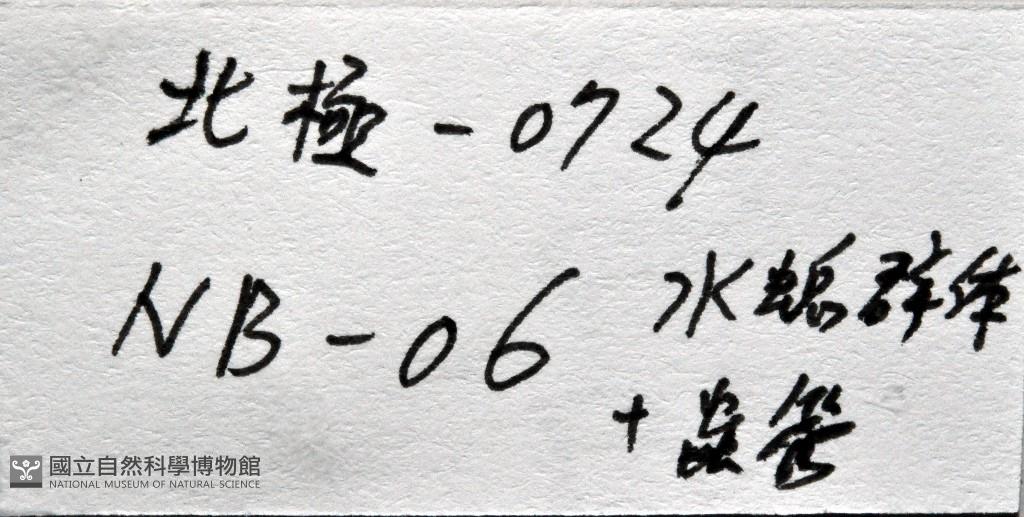 北極-0724
NB-06
水螅群体
+
國立自然科學博物館
NATIONAL MUSEUM OF NATURAL SCIENCE